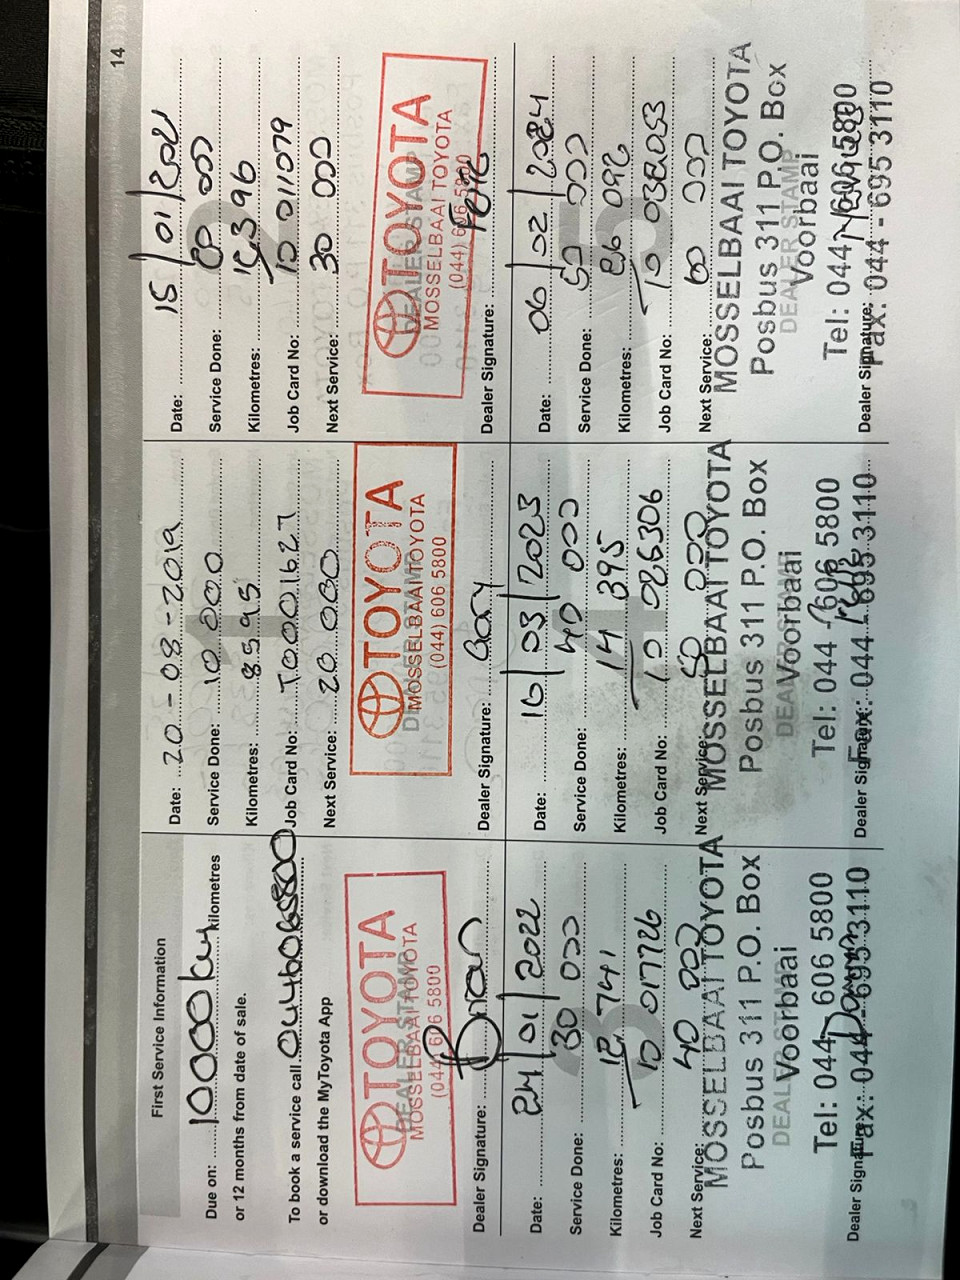 First Service Information
Due on: 10000km kilometres
or 12 months from date of sale.
To book a service call 0446065800
or download the MyToyota App
TOYOTA
DEALER STAMP
MOSSELBAAI TOYOTA
(044) 606 5800
Dealer Signature: Brian
Date: 20-08-2019
Service Done: 10 000
Kilometres: 8595
Job Card No:
Next Service: 20 000
TOYOTA
MOSSELBAAI TOYOTA
(044) 606 5800
Dealer Signature: Gary
Date: 15/01/2021
Service Done: 20 000
Kilometres:
Job Card No: 10 011079
Next Service: 30 000
TOYOTA
DEALER STAMP
MOSSELBAAI TOYOTA
(044) 606 5800
Dealer Signature:
Date: 24/01/2022
Service Done: 30 000
Kilometres: 12 741
Job Card No: 10 017726
Next Service: 40 000
MOSSELBAAI TOYOTA
Posbus 311 P.O. Box
DEALER STAMP
Voorbaai
Tel: 044 606 5800
Fax: 044 - 695 3110
Dealer Signature:
Date: 16/03/2023
Service Done: 40 000
Kilometres: 14 395
Job Card No: 10 026306
Next Service: 50 000
MOSSELBAAI TOYOTA
Posbus 311 P.O. Box
DEALER STAMP
Voorbaai
Tel: 044 606 5800
Fax: 044 - 695 3110
Dealer Signature:
Date: 06/02/2024
Service Done: 50 000
Kilometres: 26 092
Job Card No:
Next Service: 60 000
MOSSELBAAI TOYOTA
Posbus 311 P.O. Box
DEALER STAMP
Voorbaai
Tel: 044 606 5800
Fax: 044 - 695 3110
Dealer Signature:
14